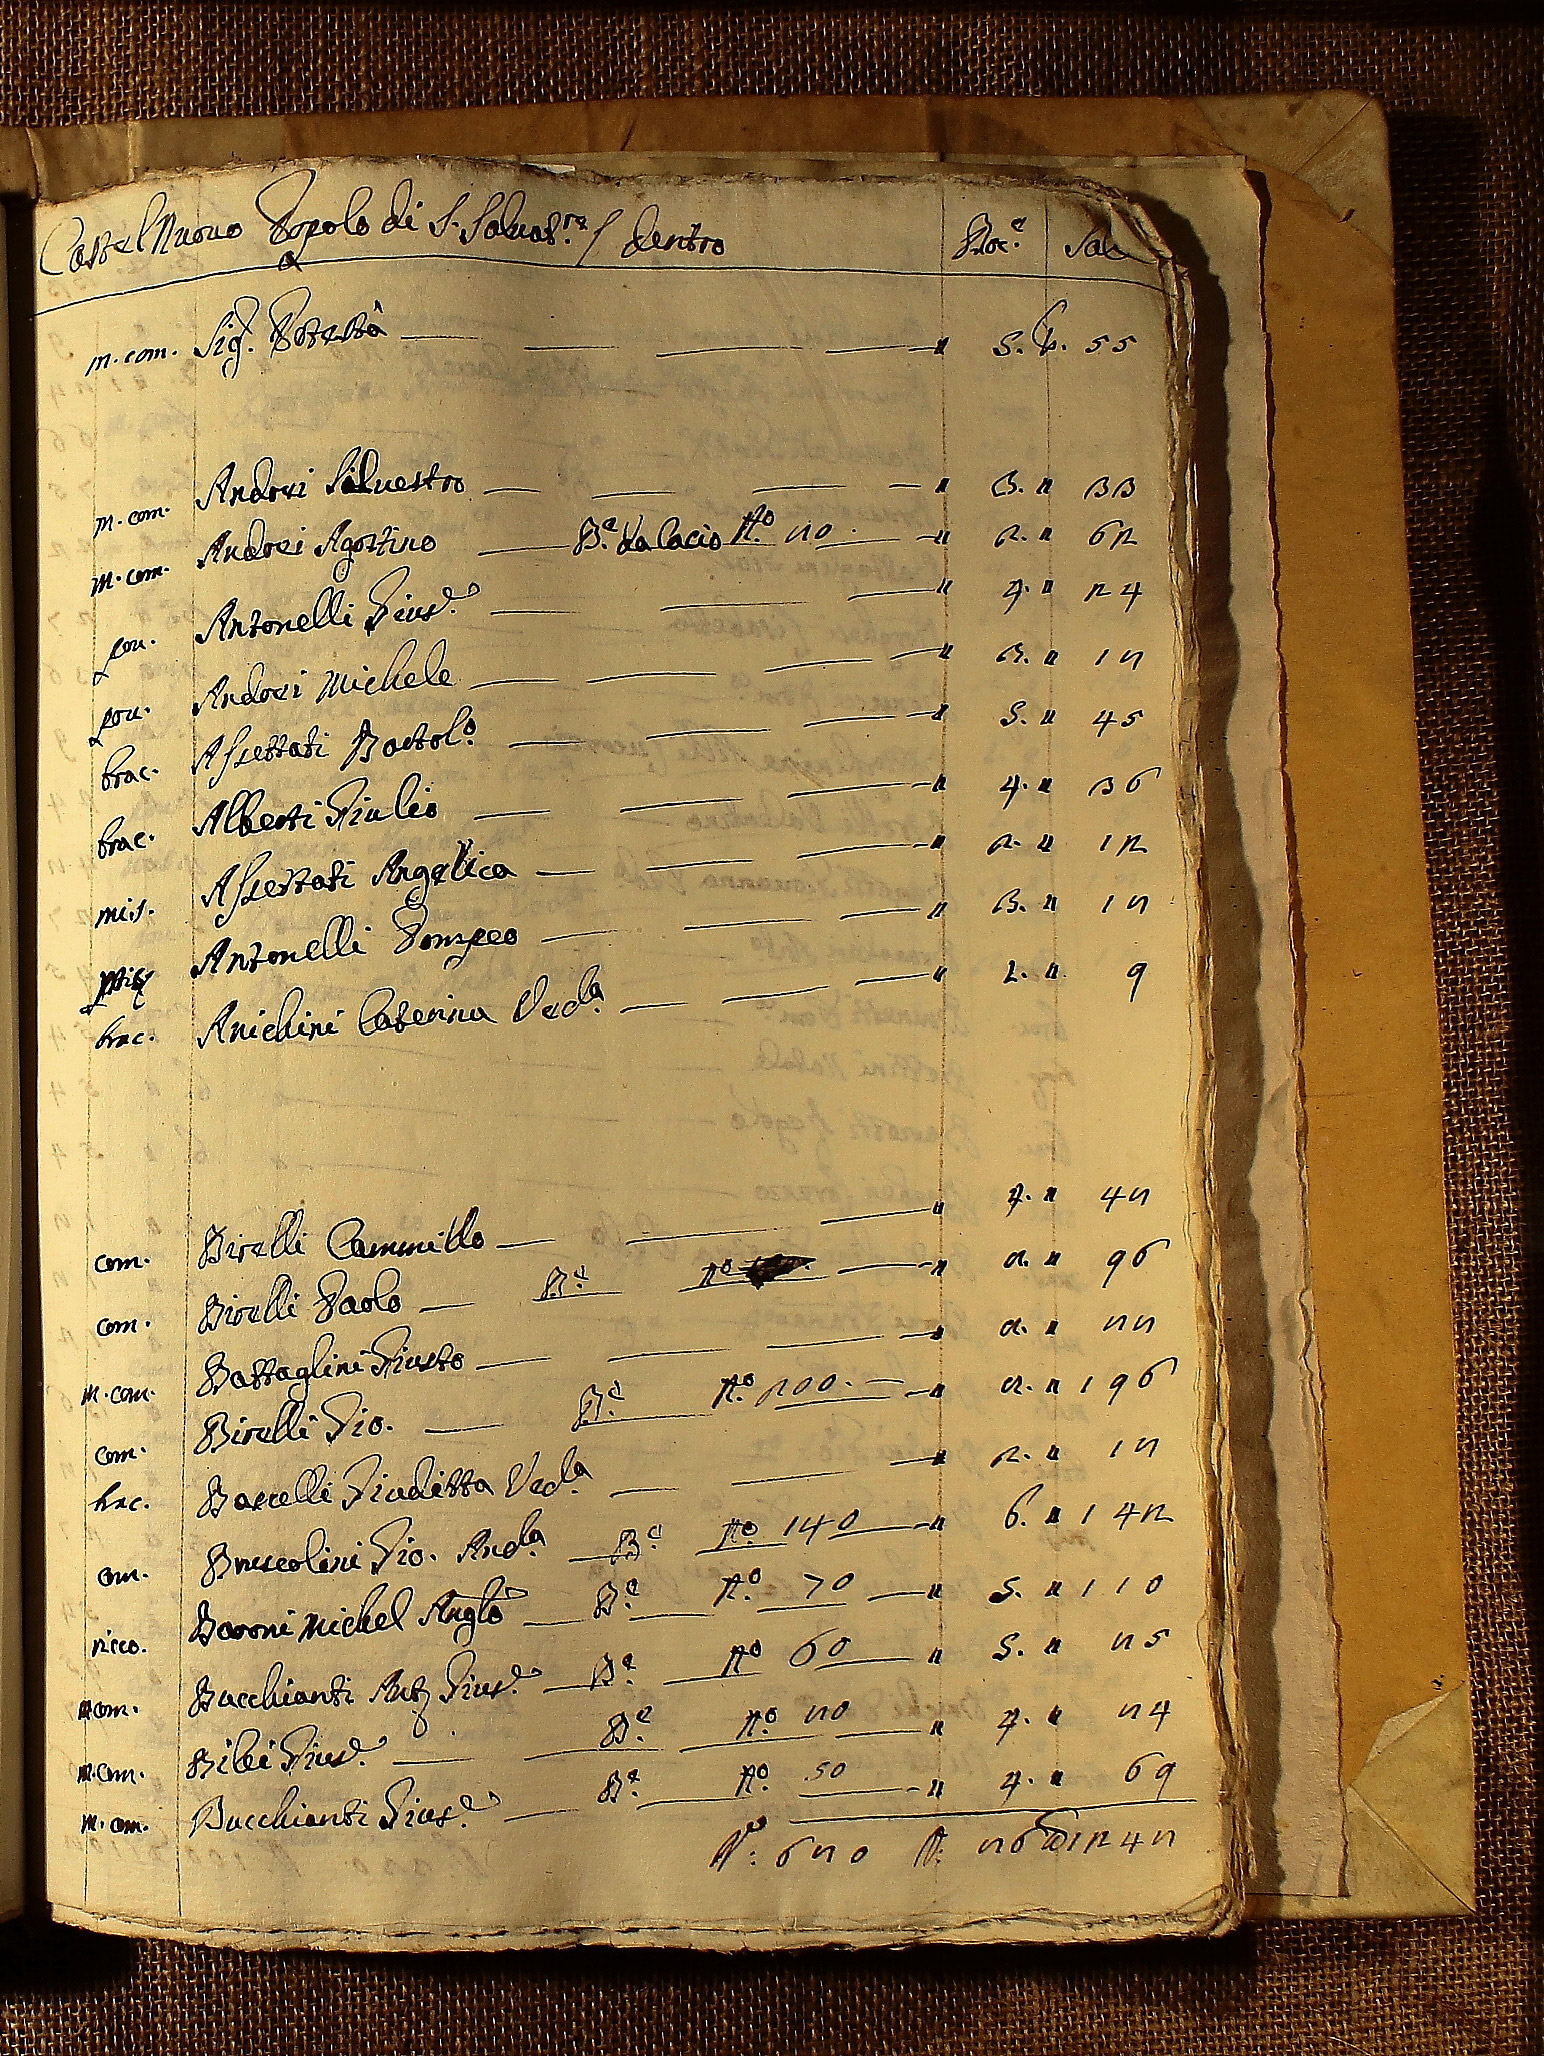 Castel Nuovo Popolo di S. Salvat.re / dentro Boc.e Sale
m. com. Sig. Potestà — " 5. L. 55
m. com. Andrei Silvestro — " 3. " 33
m. com. Andrei Agostino — B.e Palacio N.o 20. — " 2. " 62
pou. Antonelli Gius.e — " 4. " 24
pou. Andrei Michele — " 3. " 12
brac. Assettati Bartol.o — " 5. " 45
brac. Alberti Giulio — " 4. " 36
mis. Assettati Angelica — " 2. " 12
Antonelli Pompeo — " 3. " 12
brac. Anichini Caterina Ved.a — " 1. " 9
com. Birelli Cammillo — " 4. " 42
com. Birelli Paolo — B.e N.o — " 2. " 96
m. com. Battaglini Giusto — " 2. " 22
com. Birelli Gio. — B.e N.o 200. — " 2. " 196
brac. Borcelli Giuditta Ved.a — " 2. " 12
om. Bruscolini Gio. And.a — B.e N.o 140 — " 6. " 142
ricco. Baroni Michel Angelo — B.e N.o 70 — " 5. " 110
m com. Bacchianti Ant. Gius.e — B.e N.o 60 " 5. " 25
m. com. Bibi Gius.e — B.e N.o 20 " 4. " 24
m. com. Bacchianti Gius.e — B.e N.o 50 — " 4. " 69
N.o: 620